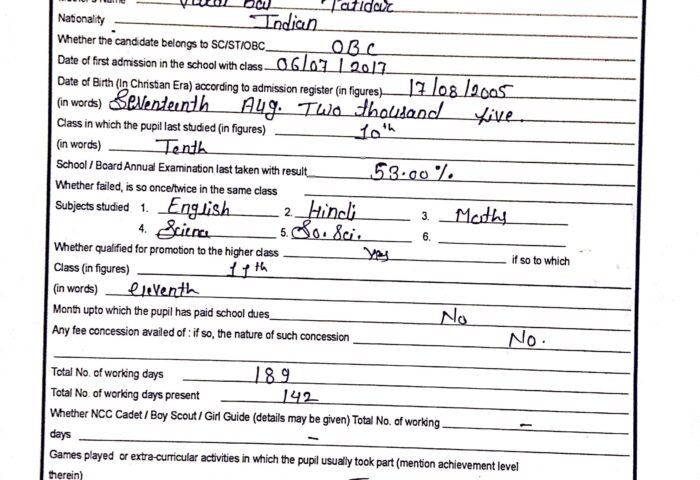 Bai Patidar
Nationality Indian
Whether the candidate belongs to SC/ST/OBC OBC
Date of first admission in the school with class 06/07/2017
Date of Birth (In Christian Era) according to admission register (in figures) 17/08/2005
(in words) Seventeenth Aug. Two thousand five.
Class in which the pupil last studied (in figures) 10th
(in words) Tenth
School / Board Annual Examination last taken with result 53.00%
Whether failed, is so once/twice in the same class
Subjects studied 1. English 2. Hindi 3. Maths
4. Science 5. So. Sci. 6.
Whether qualified for promotion to the higher class yes if so to which
Class (in figures) 11th
(in words) eleventh
Month upto which the pupil has paid school dues No
Any fee concession availed of : if so, the nature of such concession No.
Total No. of working days 189
Total No. of working days present 142
Whether NCC Cadet / Boy Scout / Girl Guide (details may be given) Total No. of working –
days –
Games played or extra-curricular activities in which the pupil usually took part (mention achievement level
therein)